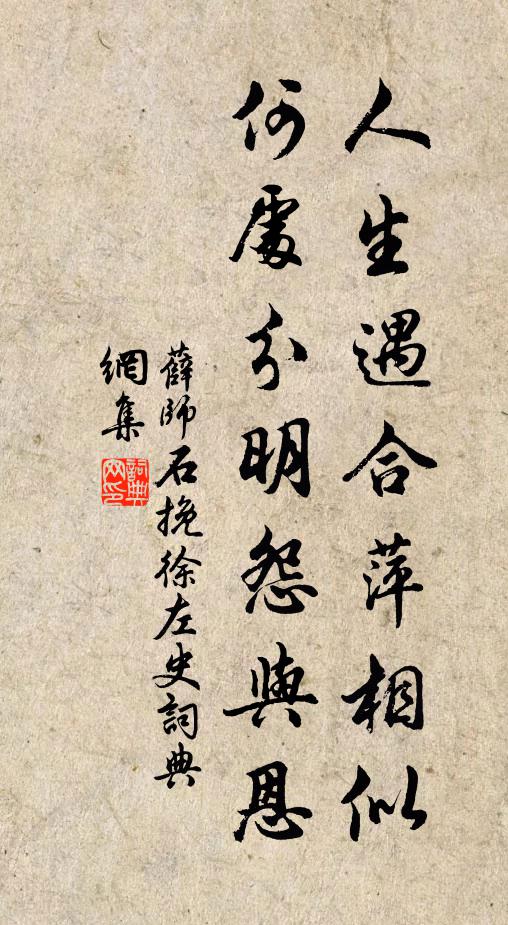 人生遇合萍相似
何處分明怨與恩
薛師石挽徐左史詞典
網集
詞典網印